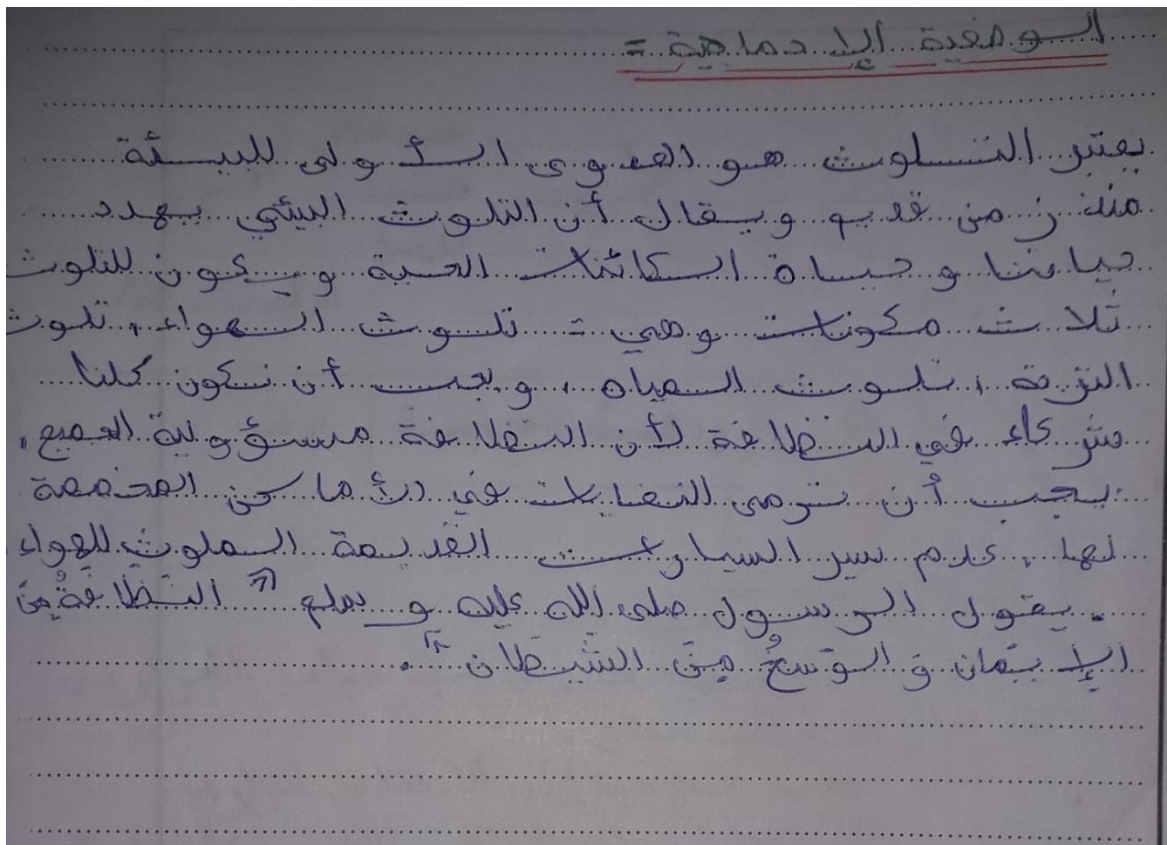 الوضعية الإدماجية =
يعتبر التلوث هو العدوى الأولى للبيئة
منذ زمن قديم ويقال أن التلوث البيئي يهدد
حياتنا وحياة الكائنات الحية ويكون للتلوث
ثلاث مكونات وهي = تلوث الهواء، تلوث
التربة، تلوث المياه، ويجب أن نكون كلنا
شركاء في النظافة لأن النظافة مسؤولية الجميع،
يجب أن نرمي النفايات في الأماكن المخصصة
لها، عدم سير السيارات القديمة الملوث للهواء
. يقول الرسول صلى الله عليه و سلم " النَّظافةُ مِنَ
الإيمان وَ الوَسَخُ مِنَ الشيطان ".